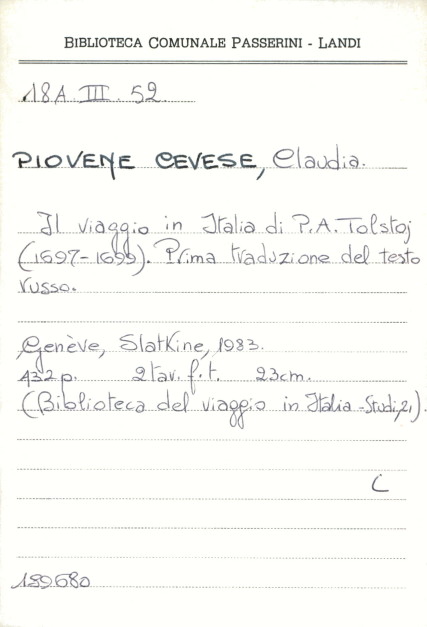 BIBLIOTECA COMUNALE PASSERINI - LANDI
18A. III. 52.
PIOVENE CEVESE, Claudia.
Il viaggio in Italia di P.A. Tolstoj
(1697-1699). Prima traduzione del testo
russo.
Genève, Slatkine, 1983.
432 p. 2 tav. f.t. 23cm.
(Biblioteca del viaggio in Italia - Studi, 21).
C
189680